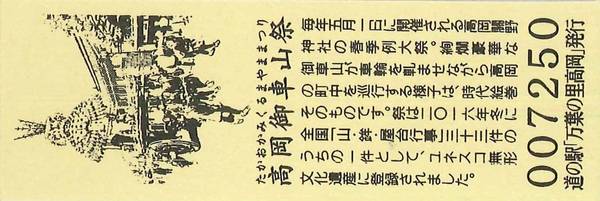 たかおかみくるまやままつり
高岡御車山祭
毎年五月一日に開催される高岡關野
神社の春季例大祭。絢爛豪華な
御車山が車輪を軋ませながら高岡
の町中を巡行する様子は、時代絵巻
そのものです。祭は二〇一六年冬に
全国「山・鉾・屋台行事」三十三件の
うちの一件として、ユネスコ無形
文化遺産に登録されました。
007250
道の駅「万葉の里高岡」発行